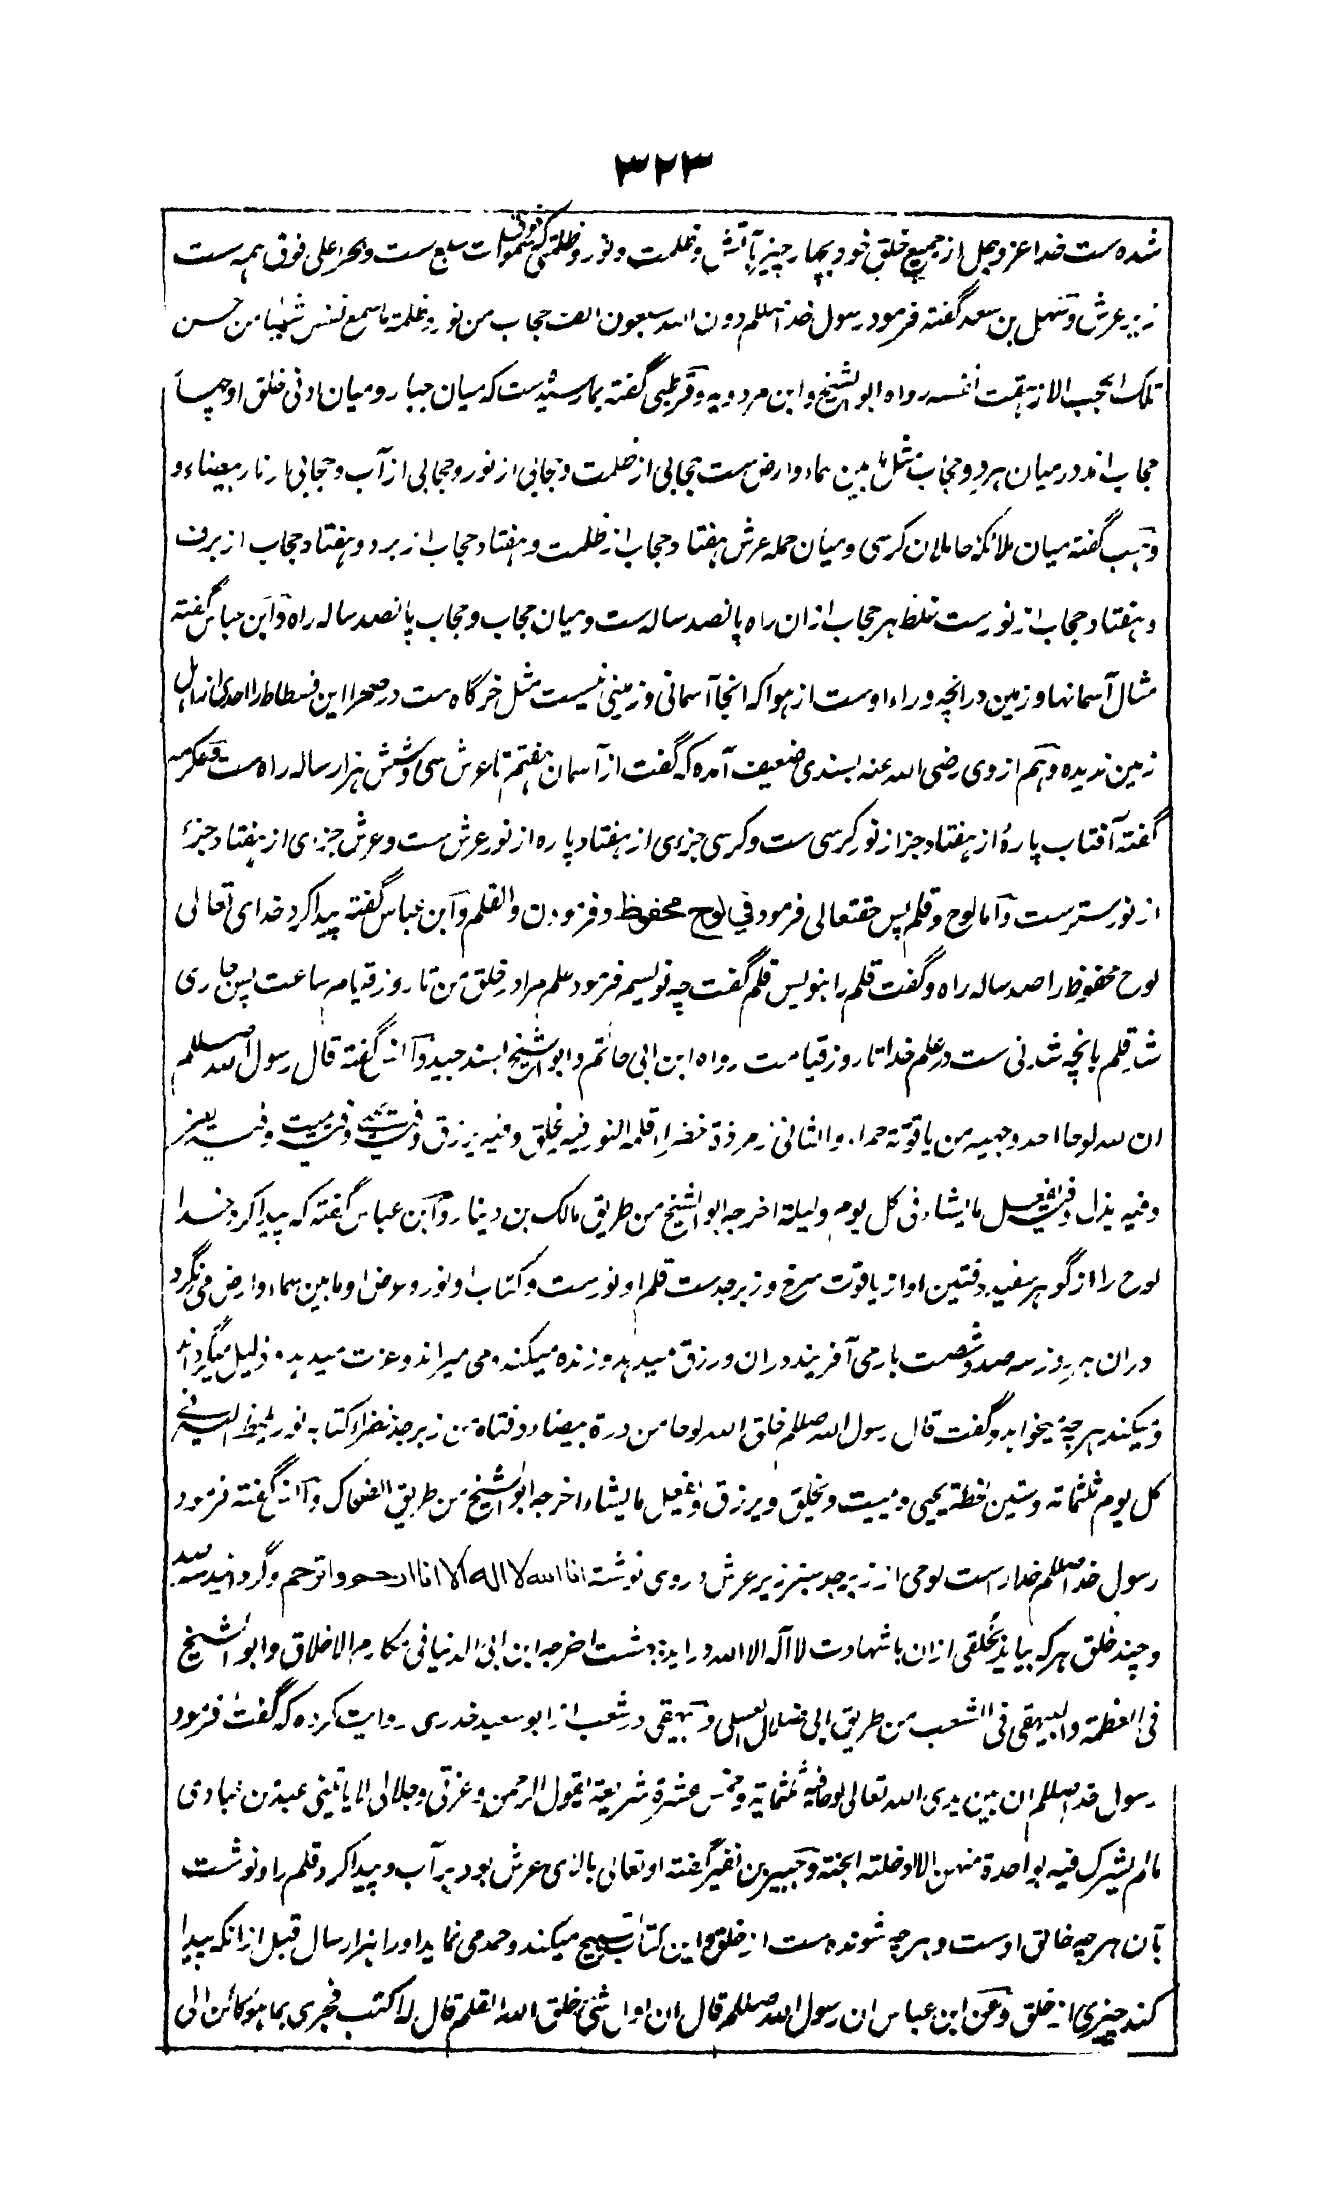 ۳۲۳
شده ست خدا عز وجل از جمیع خلق خود بچهار چیز بآتش و ظلمت و نور و ظلمتی که فوق سموات سبع ست و بحر اعلی فوق همه ست
زیر عرش و سهل بن سعد گفته فرمود رسول خدا صللم دون الله سبعون الف حجاب من نور و ظلمة ما سمع نفس شیئا من حسن
تلک الحجب الا زهقت نفسه رواه ابو الشیخ و ابن مردویه و قرطبی گفته بما رسیده ست که میان جبار و میان ادنی خلق او چهار
حجاب اند درمیان هر دو حجاب مثل ما بین سماء و ارض ست حجابی از ظلمت و حجابی از نور و حجابی از آب و حجابی از نار بیضاء و
وهب گفته میان ملائکه حاملان کرسی و میان حمله عرش هفتاد حجاب از ظلمت و هفتاد حجاب از برد و هفتاد حجاب از برف
و هفتاد حجاب از نور ست غلظ هر حجاب ازان راه پانصد ساله ست و میان حجاب و حجاب پانصد ساله راه و ابن عباس گفته
مثال آسمانها و زمین در آنچه وراء اوست از هوا که آنجا آسمانی و زمینی نیست مثل خرگاه ست در صحرا این فسطاط را احدی از اهل
زمین ندیده و هم از وی رضی الله عنه بسندی ضعیف آمده که گفت از آسمان هفتم تا عرش سی و شش هزار ساله راه ست و عکرمه
گفته آفتاب پارۀ از هفتاد جز از نور کرسی ست و کرسی جزءی از هفتاد پاره از نور عرش ست و عرش جزءی از هفتاد جزء
از نور ستر ست و اما لوح و قلم پس حقتعالی فرمود فی لوح محفوظ و فرمود ن والقلم و ابن عباس گفته پیدا کرد خدای تعالی
لوح محفوظ را صد ساله راه و گفت قلم را بنویس قلم گفت چه نویسم فرمود علم مرا در خلق من تا روز قیام ساعت پس جاری
شد قلم بانچه شدنی ست در علم خدا تا روز قیامت رواه ابن ابی حاتم و ابو الشیخ بسند جید و انس گفته قال رسول الله صللم
ان لله لوحا احد وجهیه من یاقوتة حمراء والثانی زمردة خضراء قلمه النور فیه یخلق و فیه یرزق و فیه یحیی و فیه یمیت و فیه یعز
و فیه یذل و فیه یفعل ما یشاء فی کل یوم ولیلة اخرجه ابو الشیخ من طریق مالک بن دینار و ابن عباس گفته که پیدا کرد خدا
لوح را از گوهر سفید دفتین او از یاقوت سرخ و زبرجدست قلم او نورست و کتاب او نور و عرض او ما بین سماء و ارض می نگرد
دران هر روز سه صد و شصت بار می آفریند دران و رزق میدهد و زنده میکند و می میراند و عزت میدهد و ذلیل میگرداند
و میکند هر چه میخواهد و گفت قال رسول الله صللم خلق الله لوحا من درة بیضاء دفتاه من زبرجد خضراء کتابه نور یلحظ الیه فی
کل یوم ثلثمائة و ستین لحظة یحیی و یمیت و یخلق و یرزق و یفعل ما یشاء اخرجه ابو الشیخ من طریق الضحاک و انس گفته فرمود
رسول خدا صللم خدا راست لوحی از زبرجد سبز زیر عرش در وی نوشته انا الله لا اله الا انا ارحم و اترحم و گردانید سه صد
و چند خلق هر که بیاید بخلقی ازان با شهادت لا اله الا الله در اید بهشت اخرجه ابن ابی الدنیا فی مکارم الاخلاق و ابو الشیخ
فی العظمة و البیهقی فی الشعب من طریق ابی ضلال القسلی و بیهقی در شعب از ابو سعید خدری روایت کرده که گفت فرمود
رسول خدا صللم ان بین یدی الله تعالی لوحا فیه ثلثمایة و خمس عشرة شریعة یقول الرحمن و عزتی و جلالی لا یاتینی عبد من عبادی
مالم یشرک فیه بواحدة منهن الا ادخلته الجنة و جبیر بن نفیر گفته او تعالی بالای عرش بود بر آب و پیدا کرد قلم را و نوشت
بآن هر چه خالق اوست و هر چه شونده ست از خلق و این کتاب تسبیح میکند و حمد می نماید او را هزار سال قبل ازانکه پیدا
کند چیزی از خلق و عن ابن عباس ان رسول الله صللم قال ان اول شئ خلق الله القلم قال له اکتب فجری بما هو کائن الی